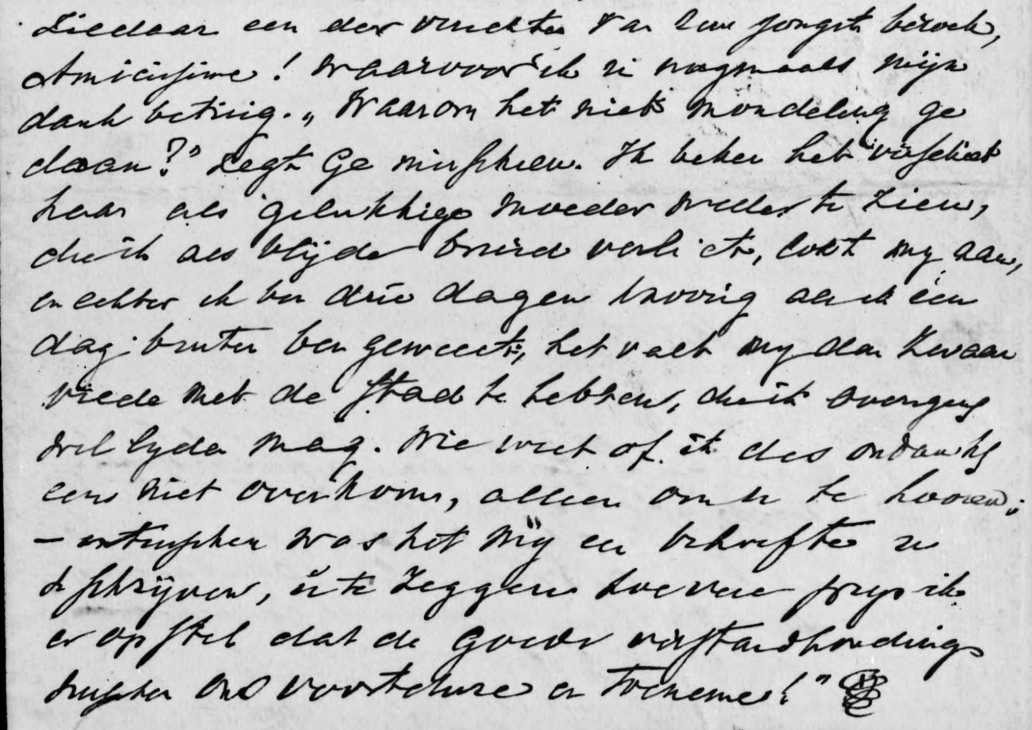 Ziedaar een der vruchten van Uw jongst bezoek,
Amicissime! waarvoor ik U nogmaals mijn
dank betuig. „Waarom het niet mondeling ge
daan?" zegt Ge misschien. Ik beken het verschiet
haar als gelukkige moeder weder te zien,
die ik als blijde bruid verliet, lokt my aan,
en echter ik ben drie dagen als ik één
dag buiten ben geweest, het valt my dan zwaar
vrede met de stad te hebben, die ik overigens
wel lyden mag. Wie weet of ik des ondanks
eens niet overkom, alleen om U te hooren;
– intusschen was het mij een behoefte U
te schrijven, U te zeggen hoe veel prijs ik
er op stel dat de goede verstandhouding
tusschen ons voortdure en toeneme!"